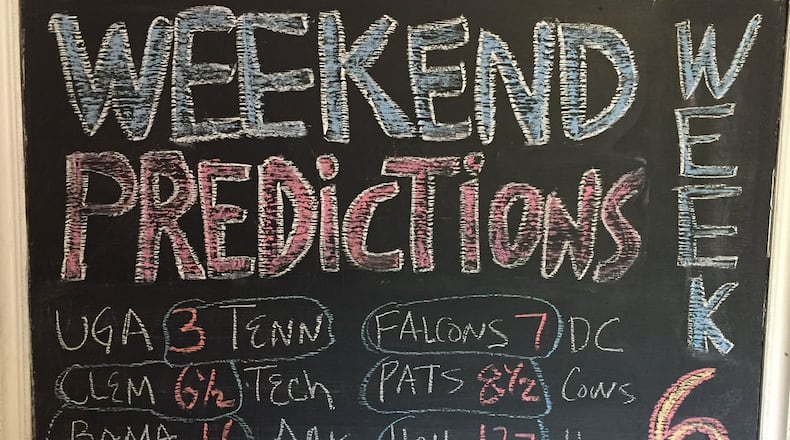 WEEKEND
PREDiCTiONS
WEEK
6
UGA 3 TENN
FALCONS 7 DC
CLEM 6½ TECH
PATS 8½ COWS
BAMA